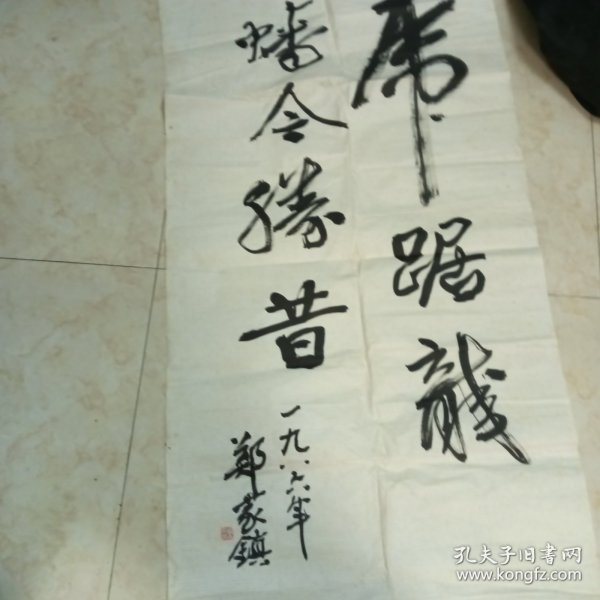 虎踞龍
蟠今勝昔
一九八六年
鄭家鎮
孔夫子旧书网
www.kongfz.com